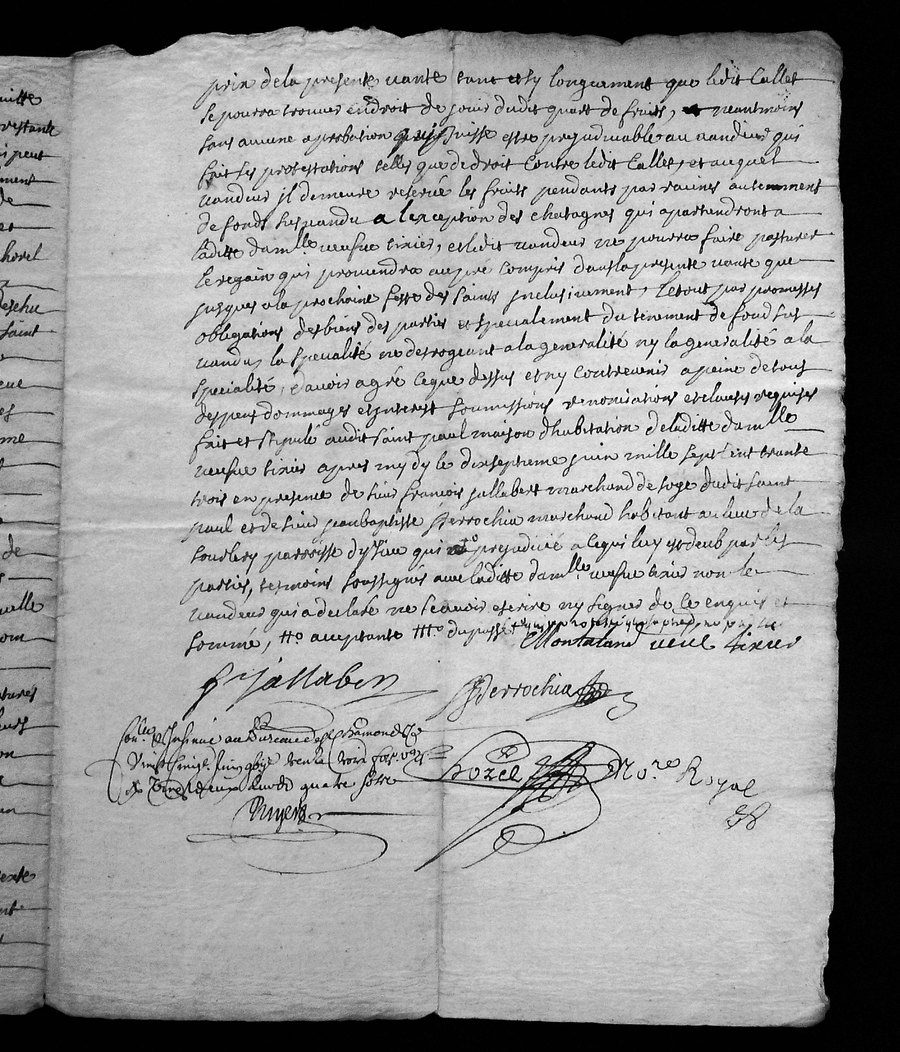 prix dela presente vante tant et sy longuement que ledit Callet
se pourra trouver en droit de jouir dudit quart de fruits, neantmoins
sans aucune aprobation qui puisse estre prejudiciable au vandeur qui
fait ses protestations telles que de droit contre ledit Callet, et auquel
vandeur jl demeure reservé les fruits pendants par racines au tenement
de fonds sus vandu a lexception des chatagnes qui apartiendront a
laditte damlle veufve tixier, et ledit vandeur ne pourra faire pasturer
le regain qui proviendra au pré compris dans la presente vante que
jusques a la prochaine feste des saints jnclusivement, le tout par promesses
obligations des biens des parties et specialement du tenement de fond sus
vandu, la specialité ne desrogeant a la generalité ny la generalité a la
specialité, davoir agré ce que dessus et ny contrevenir a peine de tous
despens dommages et interest soumissions renonciations et clauses requises
fait et stipulé audit saint paul maison dhabitation de laditte damlle
veufve tixier apres mydy le dixseptieme juin mille sept cent trante
trois en presence de sieur françois jallabert marchand de soye dudit saint
paul et de sieur jean baptiste Derrochia marchand habitant au lieu de la
parroisse qui prejudicié a ce qui luy est deub par les
parties, tesmoins soussignés avec laditte damlle veufve tixier non le
vandeur qui a declaré ne scavoir escrire ny signer de ce enquis et
sommé, acceptante
Montaland veuve tixier
fr jallabert
jb Derrochia
Conllé & Jnsinué au Bureau de St Chamond le
Vingt juin 1733
deux livres quatre sols
horel No.re Royal